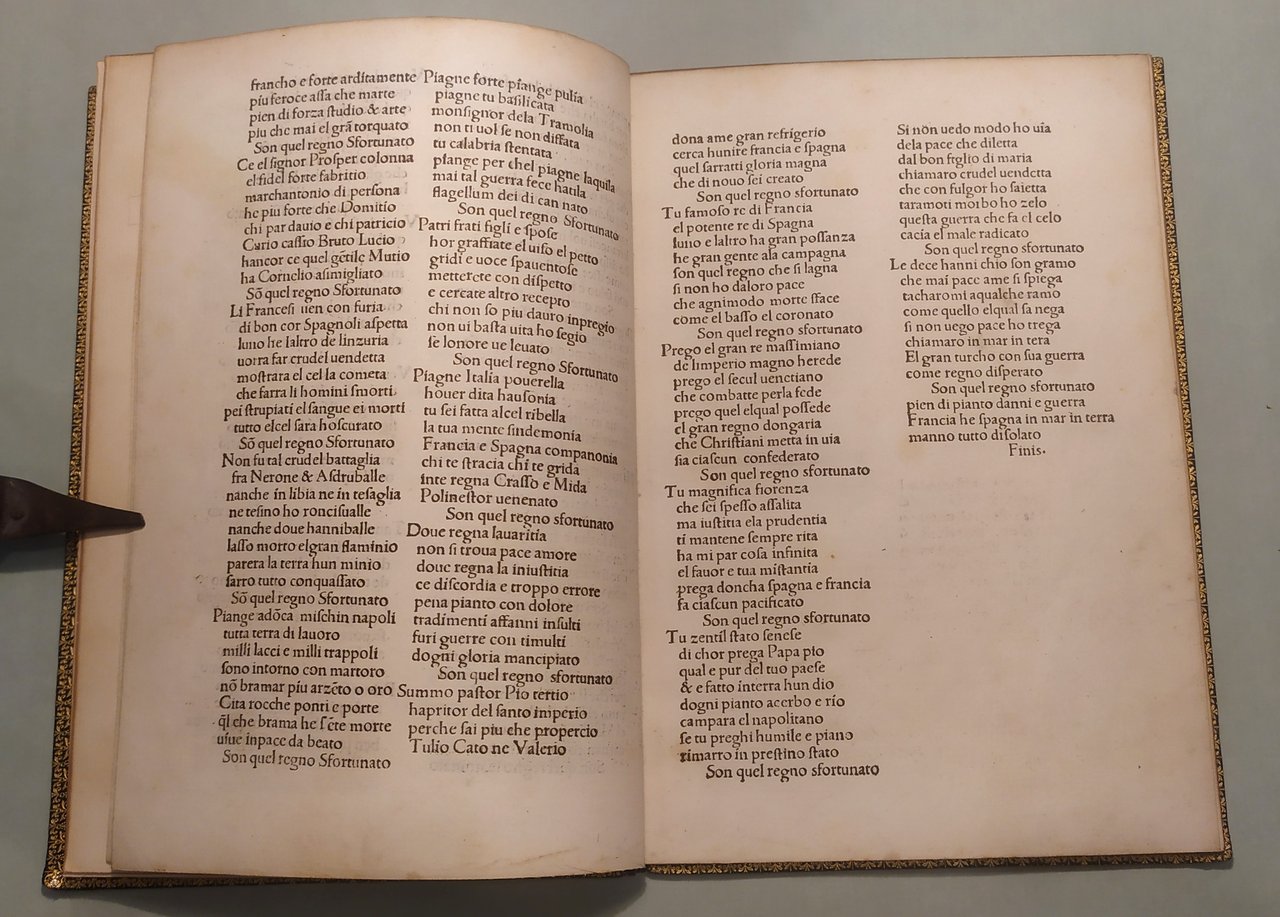 francho e forte arditamente
piu feroce assa che marte
pien di forza studio & arte
piu che mai el grā torquato
Son quel regno Sfortunato
Ce el signor Prosper colonna
el fidel forte fabritio
marchantonio di persona
he piu forte che Domitio
chi par dauio e chi patricio
Curio cassio Bruto Lucio
hancor ce quel gētile Mutio
ha Cornelio asimigliato
Sō quel regno Sfortunato
Li Francesi uen con furia
di bon cor Spagnoli aspetta
luno he laltro de linzuria
uorra far crudel uendetta
mostrara el cel la cometa
che farra li homini smorti
pei strupiati el sangue ei morti
tutto elcel sara hoscurato
Sō quel regno Sfortunato
Non fu tal crudel battaglia
fra Nerone & Asdruballe
nanche in libia ne in tesaglia
ne tesino ho roncisualle
nanche doue hanniballe
lasso morto elgran flaminio
parera la terra hun minio
sarro tutto conquassato
Sō quel regno Sfortunato
Piange adōca mischin napoli
tutta terra di lauoro
milli lacci e milli trappoli
sono intorno con martoro
nō bramar piu arzēto o oro
Cita rocche ponti e porte
q̄l che brama he sēte morte
uiue inpace da beato
Son quel regno Sfortunato
Piagne forte piange pulia
piagne tu basilicata
monsignor dela Tramolia
non ti uol se non diffata
tu calabria stentata
piange per chel piagne laquila
mai tal guerra fece hatila
flagellum dei di can nato
Son quel regno Sfortunato
Patri frati figli e spose
hor graffiate el uiso el petto
gridi e uoce spauentose
metterete con dispetto
e cercate altro recepto
chi non so piu dauro inpregio
non ui basta uita ho segio
se lonore ue leuato
Son quel regno Sfortunato
Piagne Italia pouerella
houer dita hausonia
tu sei fatta alcel ribella
la tua mente sindemonia
Francia e Spagna companonia
chi te stracia chi te grida
inte regna Crasso e Mida
Polinestor uenenato
Son quel regno sfortunato
Doue regna lauaritia
non si troua pace amore
doue regna la iniustitia
ce discordia e troppo errore
pena pianto con dolore
tradimenti affanni insulti
furi guerre con timulti
dogni gloria mancipiato
Son quel regno sfortunato
Summo pastor Pio tertio
hapritor del santo imperio
perche sai piu che propercio
Tulio Cato ne Valerio
dona ame gran refrigerio
cerca hunire francia e spagna
quel sarratti gloria magna
che di nouo sei creato
Son quel regno sfortunato
Tu famoso re di Francia
el potente re di Spagna
luno e laltro ha gran possanza
he gran gente ala campagna
son quel regno che si lagna
si non ho daloro pace
che agnimodo morte sface
come el basso el coronato
Son quel regno sfortunato
Prego el gran re massimiano
de limperio magno herede
prego el secul uenetiano
che combatte perla fede
prego quel elqual possede
el gran regno dongaria
che Christiani metta in uia
sia ciascun confederato
Son quel regno sfortunato
Tu magnifica fiorenza
che sei spesso assalita
ma iustitia ela prudentia
ti mantene sempre rita
ha mi par cosa infinita
el fauor e tua mistantia
prega doncha spagna e francia
fa ciascun pacificato
Son quel regno sfortunato
Tu zentil stato senese
di chor prega Papa pio
qual e pur del tuo paese
& e fatto interra hun dio
dogni pianto acerbo e rio
campara el napolitano
se tu preghi humile e piano
rimarro in prestino stato
Son quel regno sfortunato
Si non uedo modo ho uia
dela pace che diletta
dal bon figlio di maria
chiamaro crudel uendetta
che con fulgor ho saietta
taramoti moi bo ho zelo
questa guerra che fa el celo
cacia el male radicato
Son quel regno sfortunato
Le dece hanni chio son gramo
che mai pace ame si spiega
tacharomi aqualche ramo
come quello elqual sa nega
si non uego pace ho trega
chiamaro in mar in tera
El gran turcho con sua guerra
come regno disperato
Son quel regno sfortunato
pien di pianto danni e guerra
Francia he spagna in mar in terra
manno tutto disolato
Finis.